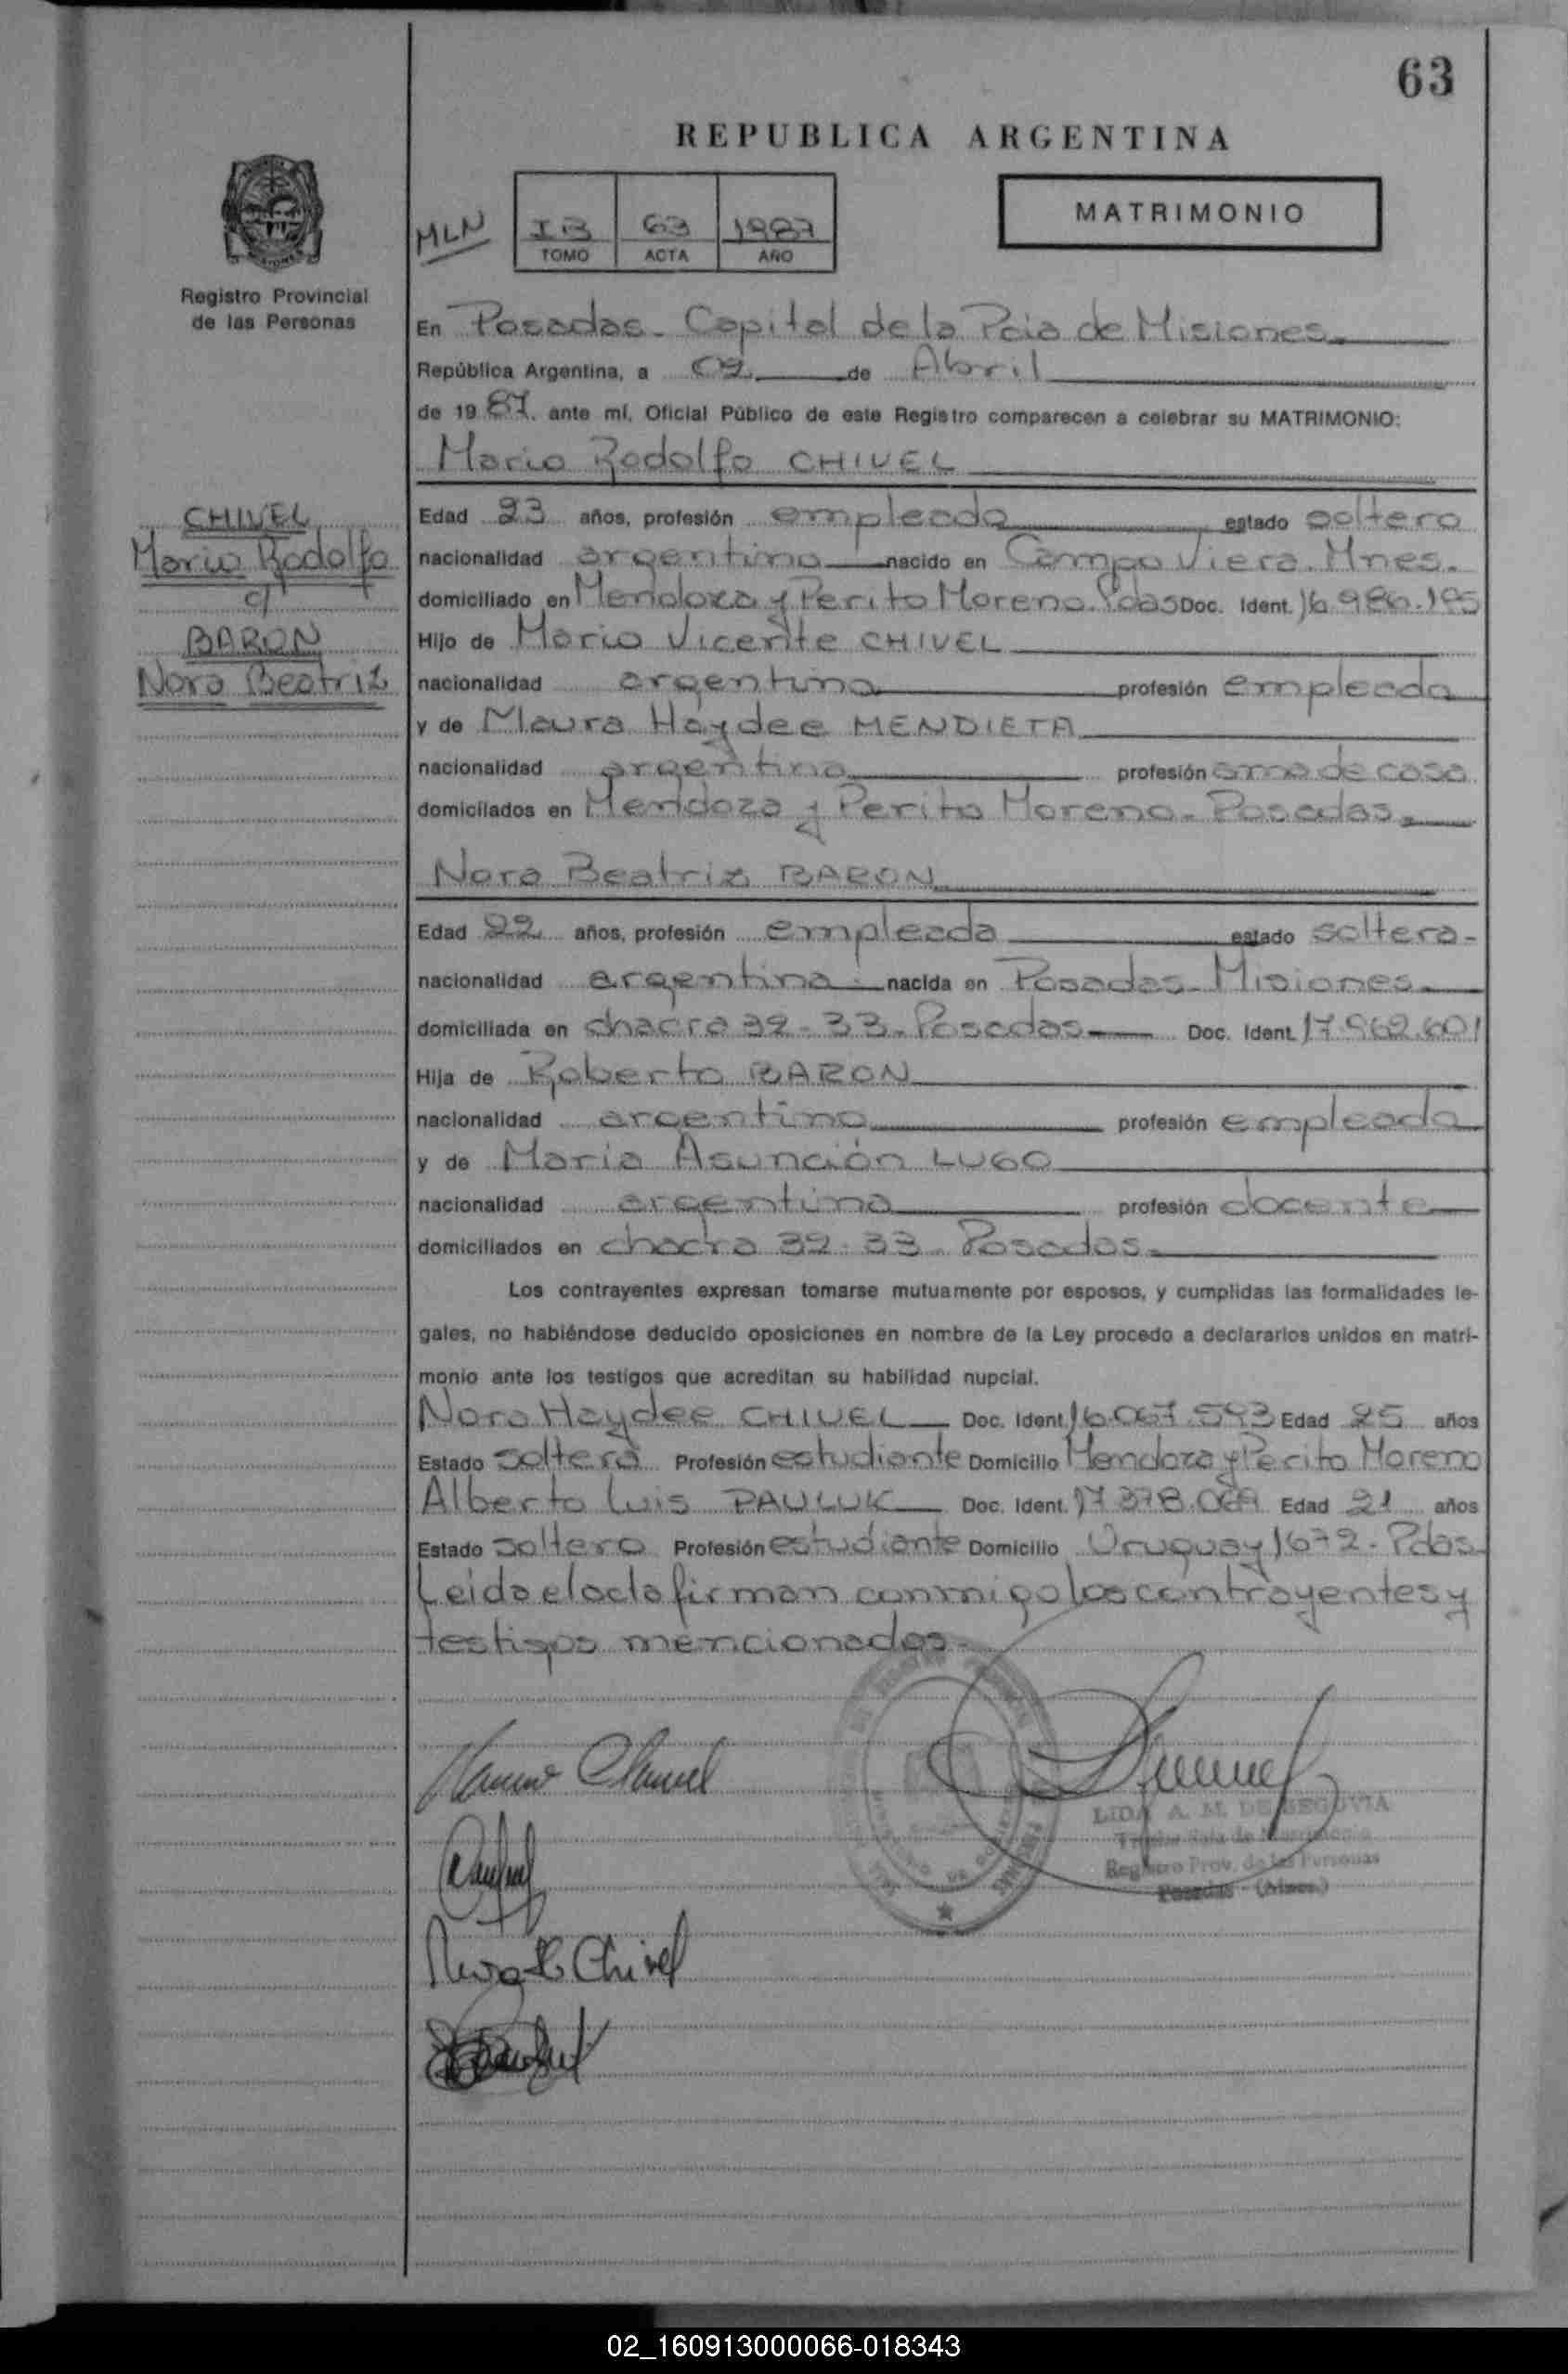 63
REPUBLICA ARGENTINA
MLN
IB 63 1987
TOMO ACTA AÑO
MATRIMONIO
Registro Provincial
de las Personas
En Posadas - Capital de la Pcia de Misiones
República Argentina, a 09 de Abril
de 19 87 ante mí, Oficial Público de este Registro comparecen a celebrar su MATRIMONIO:
Mario Rodolfo CHIVEL
CHIVEL
Mario Rodolfo
c/
BARON
Nora Beatriz
Edad 23 años, profesión empleado estado soltero
nacionalidad argentino nacido en Campo Viera. Mnes.
domiciliado en Mendoza y Perito Moreno. Pdas Doc. Ident. 16.980.195
Hijo de Mario Vicente CHIVEL
nacionalidad argentino profesión empleado
y de Maura Haydee MENDIETA
nacionalidad argentina profesión ama de casa
domicilados en Mendoza y Perito Moreno - Posadas.
Nora Beatriz BARON
Edad 22 años, profesión empleada estado soltera -
nacionalidad argentina nacida en Posadas - Misiones
domiciliada en chacra 32-33 - Posadas Doc. Ident. 17.962.601
Hija de Roberto BARON
nacionalidad argentino profesión empleado
y de María Asunción LUGO
nacionalidad argentina profesión docente
domiciliados en chacra 32-33 - Posadas.
Los contrayentes expresan tomarse mutuamente por esposos, y cumplidas las formalidades le-
gales, no habiéndose deducido oposiciones en nombre de la Ley procedo a declararlos unidos en matri-
monio ante los testigos que acreditan su habilidad nupcial.
Nora Haydee CHIVEL Doc. Ident. 16.067.593 Edad 25 años
Estado soltera Profesión estudiante Domicilio Mendoza y Perito Moreno
Alberto Luis PAULUK Doc. Ident. 17.378.069 Edad 21 años
Estado soltero Profesión estudiante Domicilio Uruguay 1672 - Pdas.
Leida el acta firman conmigo los contrayentes y
testigos mencionados -
Chivel
LIDA A. M. DE SEGOVIA
Registro Prov. de las Personas
Posadas - (Mnes.)
02_160913000066-018343